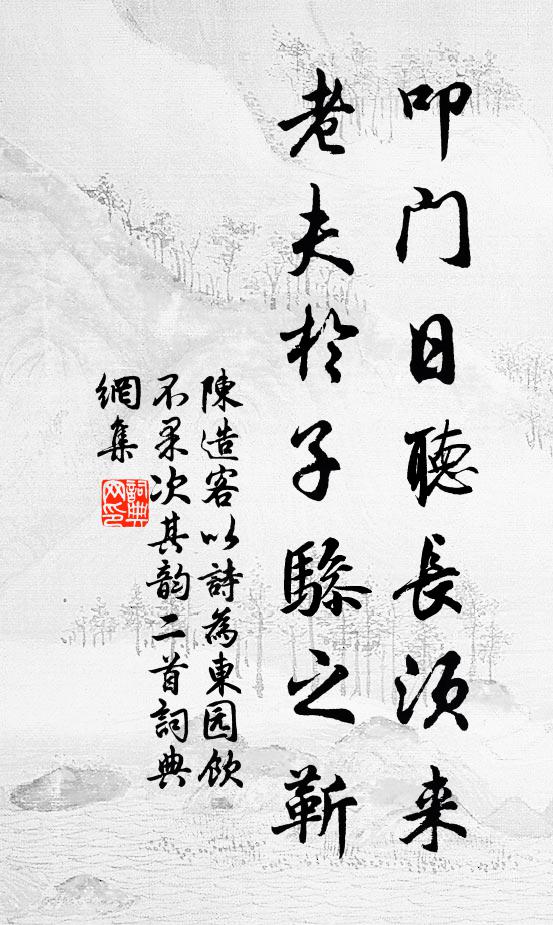 叩门日聽長須来
老夫於子驂之靳
陳造客以詩為東园飲
不果次其韵二首詞典
網集
詞典网印